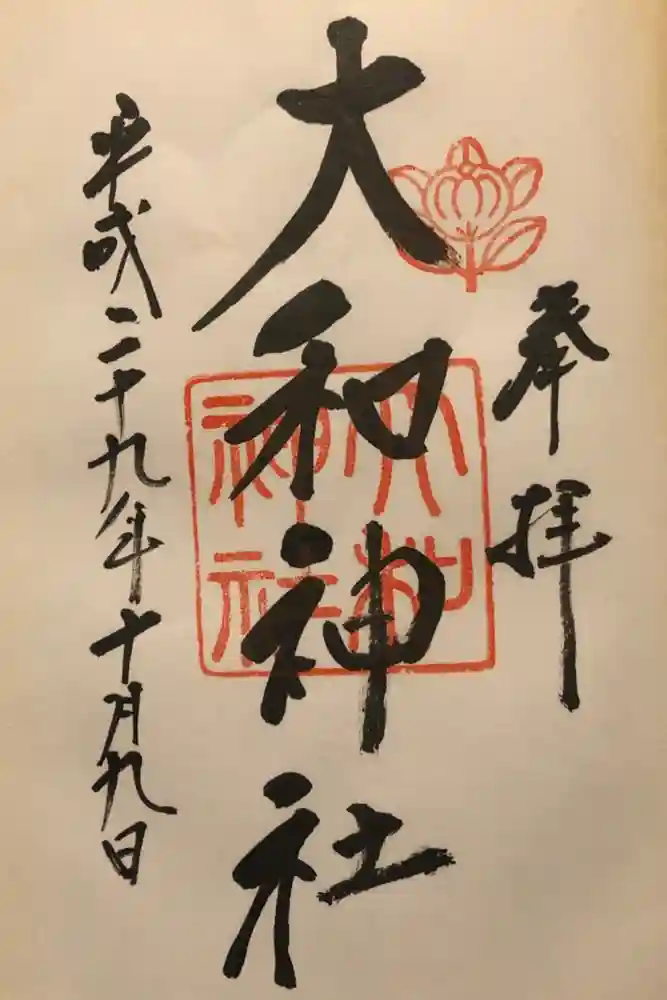 奉拝
大和神社
大和神社
平成二十九年十月九日